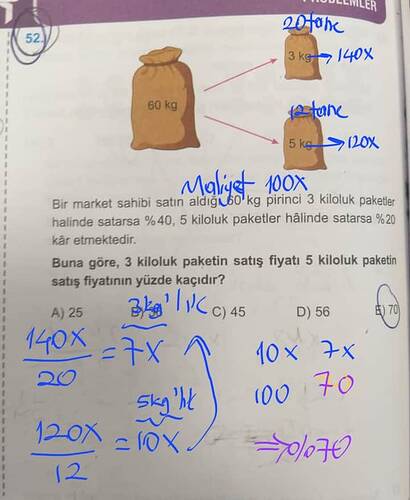 PROBLEMLER
52.
20 tane
3 kg → 140X
60 kg
12 tane
5 kg → 120X
Maliyet 100X
Bir market sahibi satın aldığı 60 kg pirinci 3 kiloluk paketler
halinde satarsa %40, 5 kiloluk paketler hâlinde satarsa %20
kâr etmektedir.
Buna göre, 3 kiloluk paketin satış fiyatı 5 kiloluk paketin
satış fiyatının yüzde kaçıdır?
A) 25 C) 45 D) 56 E) 70
3kg'lık
140X/20 = 7X
10X 7X
5kg'lık
100 70
120X/12 = 10X
⇒ %70